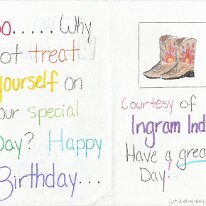 oo..... Why
ot treat
yourself on
our special
Day? Happy
Birthday...
Courtesy of
Ingram Ind
Have a grea
Day...